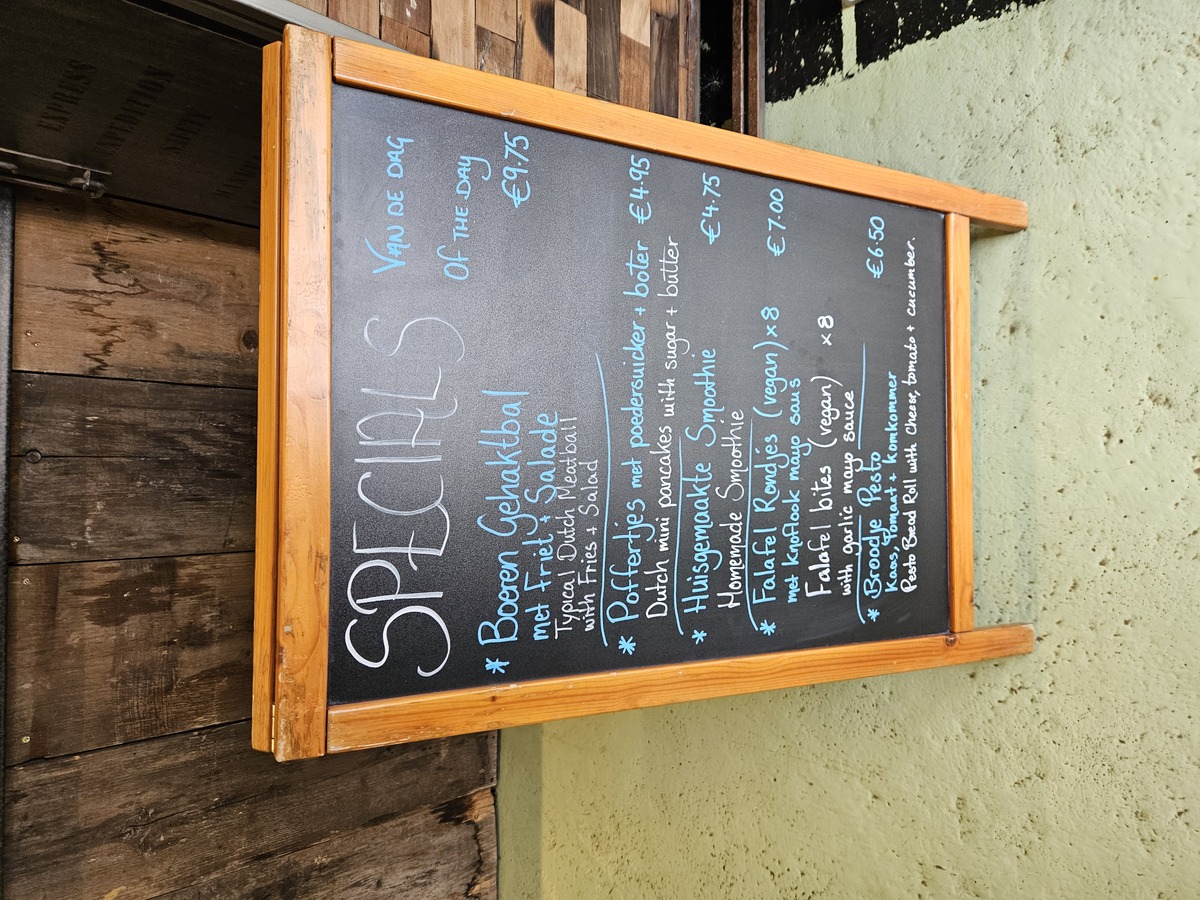 EXPRESS
EXPEDITION
SPECIALS
VAN DE DAG
OF THE DAY
* Boeren Gehaktbal €9.75
met Friet + Salade
Typical Dutch Meatball
with Fries + Salad
* Poffertjes met poedersuicker + boter €4.95
Dutch mini pancakes with sugar + butter
* Huisgemaakte Smoothie €4.75
Homemade Smoothie
* Falafel Rondjes (vegan) x8 €7.00
met knoflook mayo saus
Falafel bites (vegan) x8
with garlic mayo sauce
* Broodje Pesto €6.50
Kaas, Tomaat + Komkommer
Pesto Bread Roll with cheese, tomato + cucumber.